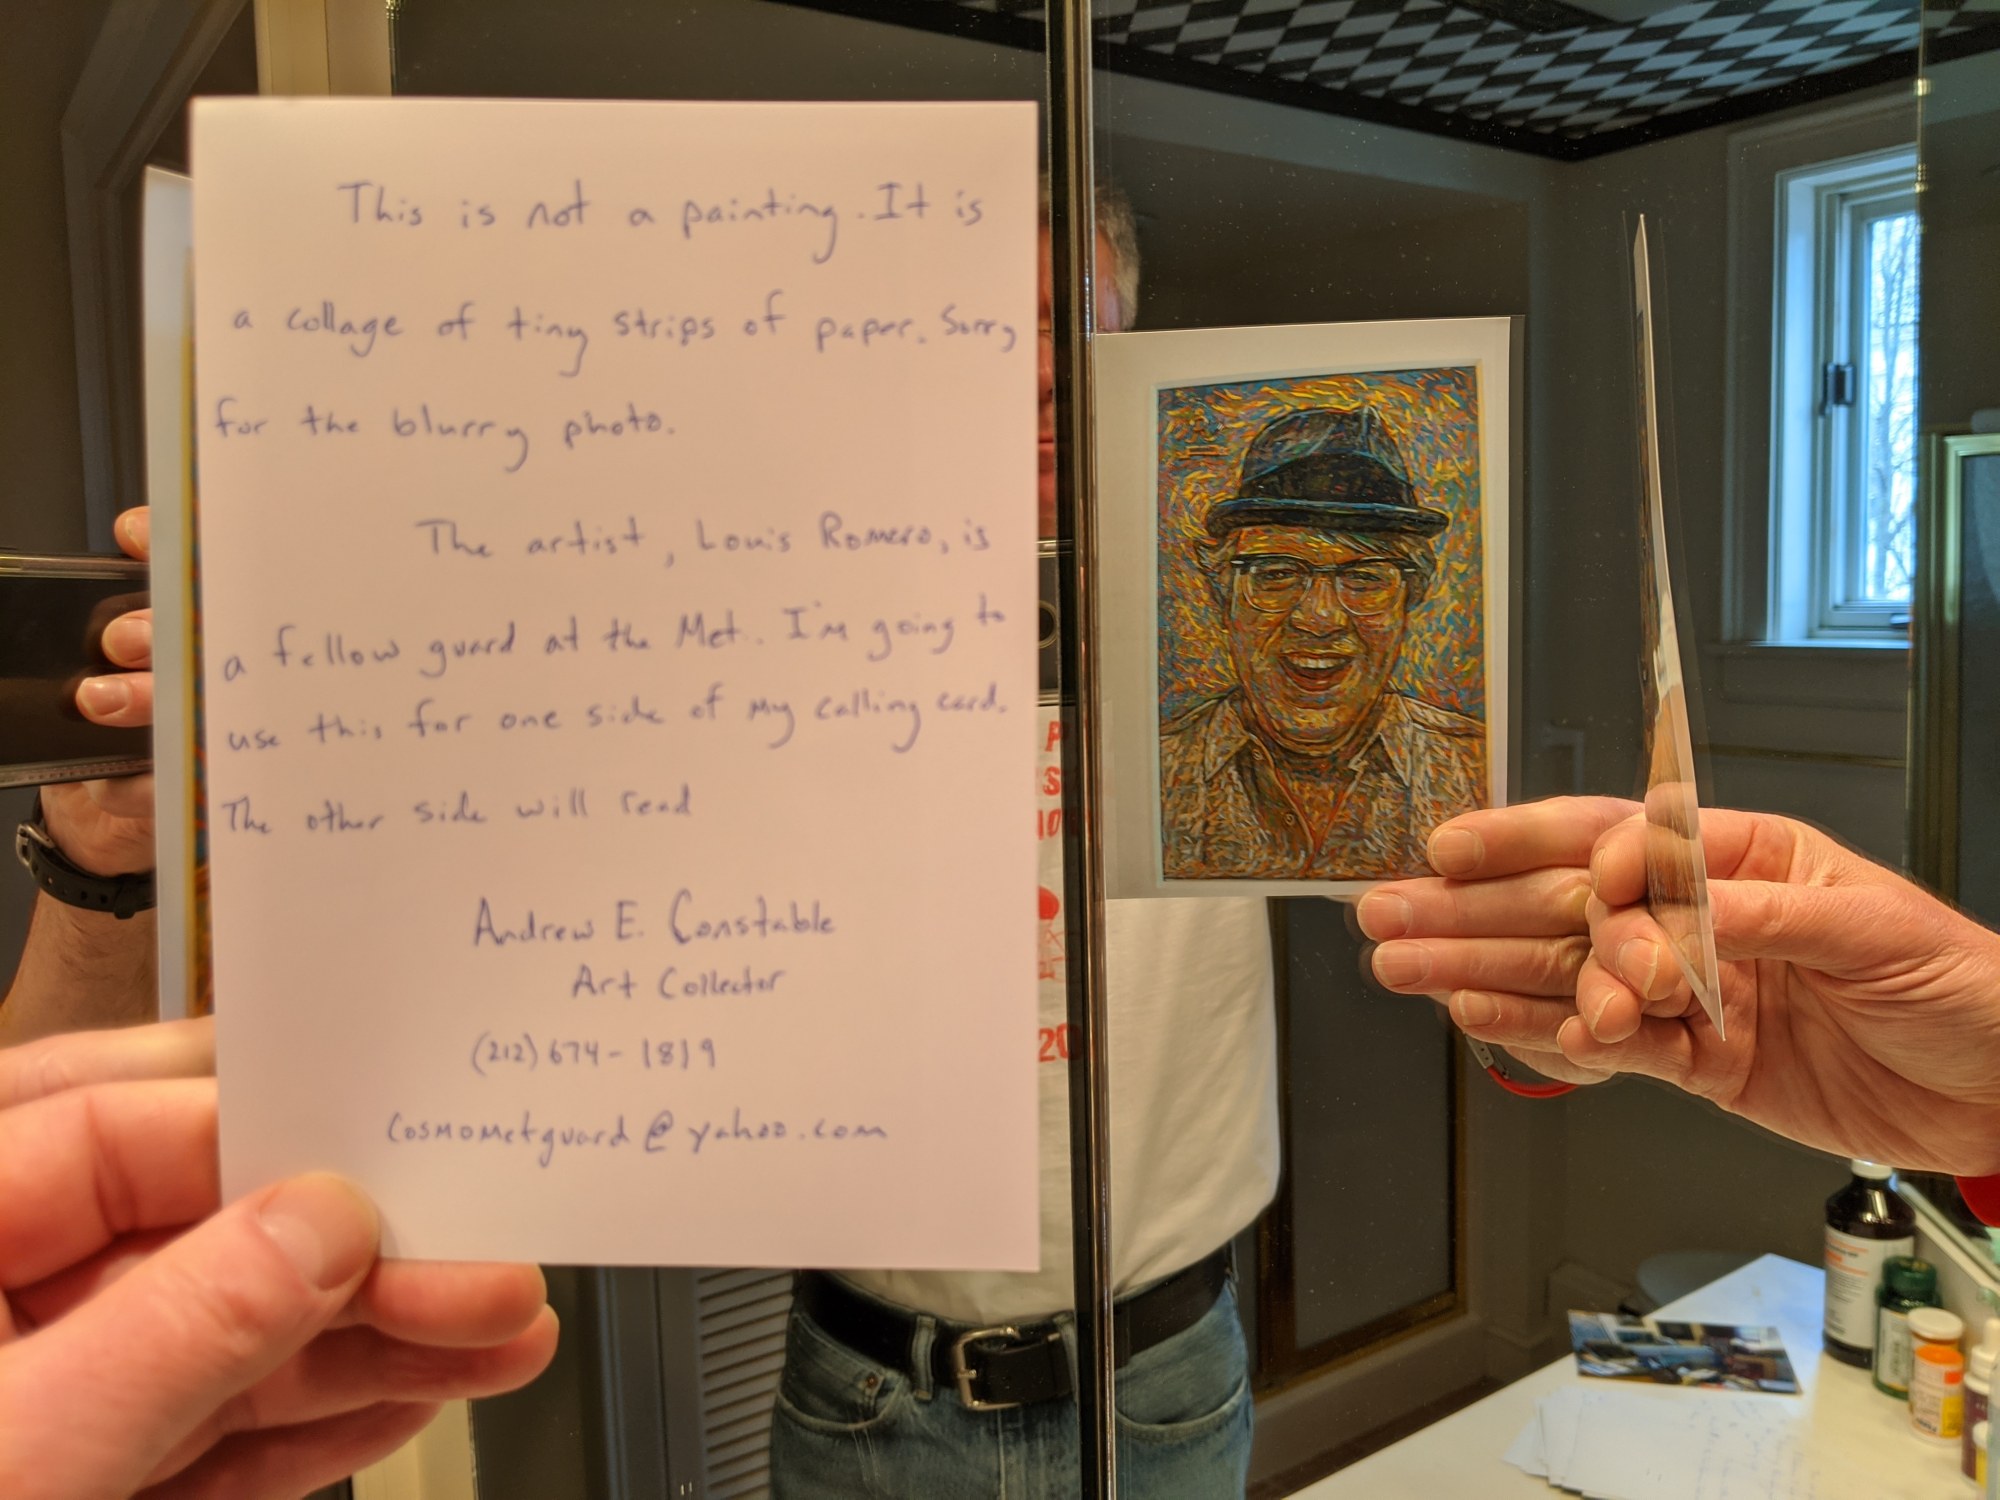 This is not a painting. It is
a collage of tiny strips of paper. Sorry
for the blurry photo.
The artist, Louis Romero, is
a fellow guard at the Met. I'm going to
use this for one side of my calling card.
The other side will read
Andrew E. Constable
Art Collector
(212) 674-1819
cosmometguard@yahoo.com
P
S
10
20